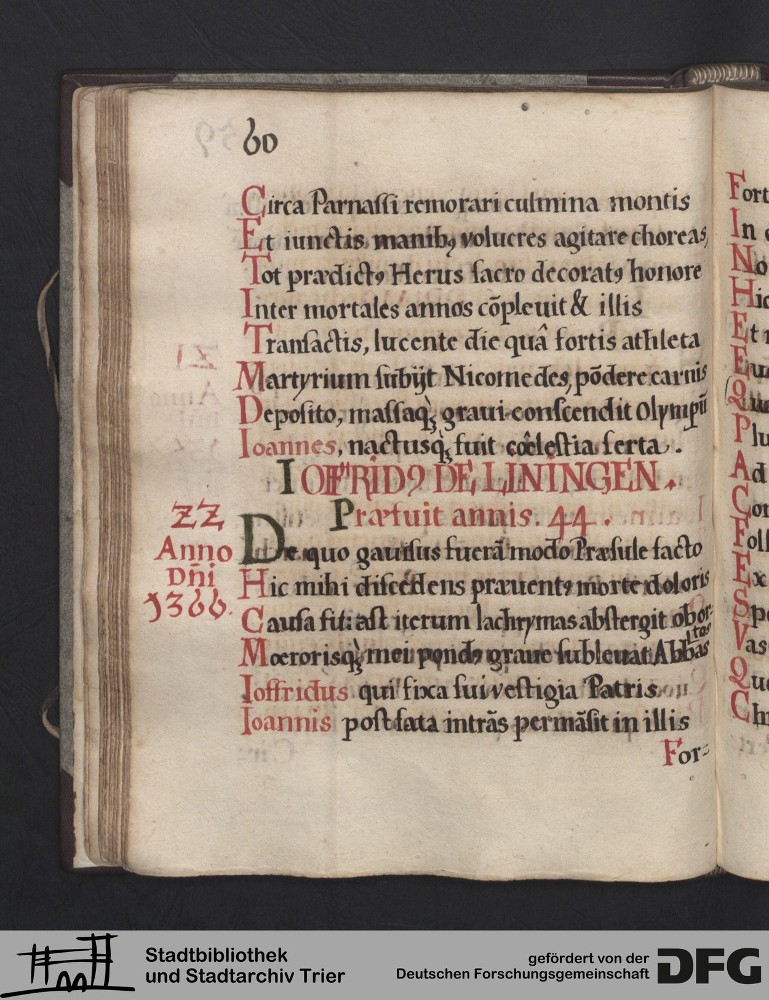 60
Circa Parnassi remorari culmina montis
Et iunctis manibꝯ volucres agitare choreas,
Tot prædictꝯ Herus sacro decoratꝯ honore
Inter mortales annos cõpleuit & illis
Transactis, lucente die quâ fortis athleta
Martyrium subijt Nicomedes, põdere carnis
Deposito, massaq̀ꝫ graui conscendit Olympũ
Ioannes, nactusq̀ꝫ fuit cœlestia serta.
IOFFRIDꝯ DE LININGEN.
Præfuit annis. 44.
22
Anno
Dñi
1366.
De quo gauisus fuerã modo Præsule facto
Hic mihi discedens præuentꝯ morte doloris
Causa fit: ast iterum lachrymas abstergit obor
tas
Mœrorisq̀ꝫ mei pondꝯ graue subleuat Abbas
Ioffridus qui fixa sui vestigia Patris
Ioannis post fata intrãs permãsit in illis
For=
Fort
In
No
Hic
Et
Plu
Ad
Con
Foss
Ex
Spe
Vas
Stadtbibliothek
und Stadtarchiv Trier
gefördert von der
Deutschen Forschungsgemeinschaft
DFG